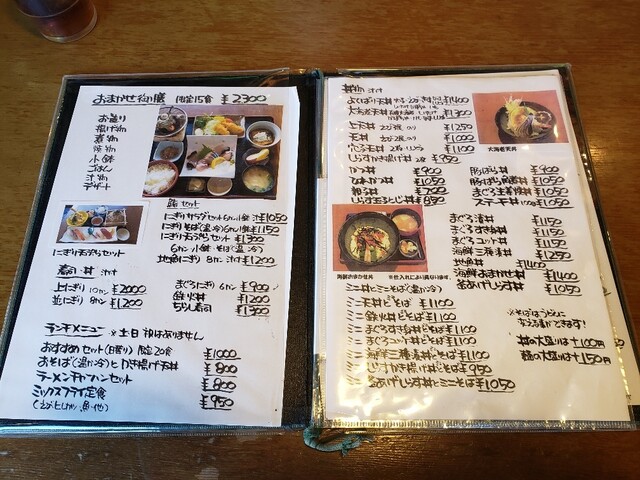 おまかせ御膳 限定15食 ¥2300
お造り
揚げ物
煮物
焼物
小鉢
ごはん
汁物
デザート
鮨セット
にぎりサラダセット6カン小鉢 汁¥1050
にぎりそば(温冷)6カン小鉢¥1150
にぎり天ぷらセット ¥1300
6カン小鉢 そば(温冷)
地魚にぎり 8カン 汁付¥1200
にぎり天ぷらセット
寿し・丼 汁付
上にぎり 10カン ¥2000
並にぎり 8カン ¥1200
まぐろにぎり 6カン ¥900
鉄火丼 ¥1200
ちらし寿司 ¥1300
ランチメニュー ※土日祝はありません
おすすめセット(日替り)限定20食 ¥1000
おそば(温か冷)とかき揚げ天丼 ¥800
ラーメンチャーハンセット ¥800
ミックスフライ定食 ¥950
(えび・ヒレカツ・魚・他)
丼物 汁付
¥1400
¥1300
上天丼 ¥1250
天丼 ¥1000
穴子天丼 ¥1100
しらすかき揚げ丼 2枚 ¥950
大海老天丼
かつ丼 ¥900
ひれかつ丼 ¥1050
親子丼 ¥700
しらす玉るじ丼¥850
豚ばら丼 ¥900
¥1050
¥1050
スタミナ丼 ¥1000
まぐろ漬丼 ¥1150
まぐろすき身丼 ¥1150
まぐろユッケ丼 ¥1150
海鮮三種漬丼 ¥1250
地魚丼 ¥1400
海鮮おまかせ丼 ¥1400
釜あげしらす丼 ¥1050
海鮮おまかせ丼 ※仕入れにより異なります
ミニ丼とミニそば(温か冷)
ミニ天丼とそば ¥1100
ミニ鉄火丼とそば ¥1100
ミニまぐろすき身丼とそば¥1100
ミニまぐろユッケ丼とそば¥1100
ミニ海鮮三種漬丼とそば¥1100
ミニしらすかき揚げ丼とそば ¥950
ミニ釜あげしらす丼とミニそば ¥1050
※そばはうどんに
かえる事ができます!
丼の大盛りは+100円
麺の大盛りは+150円